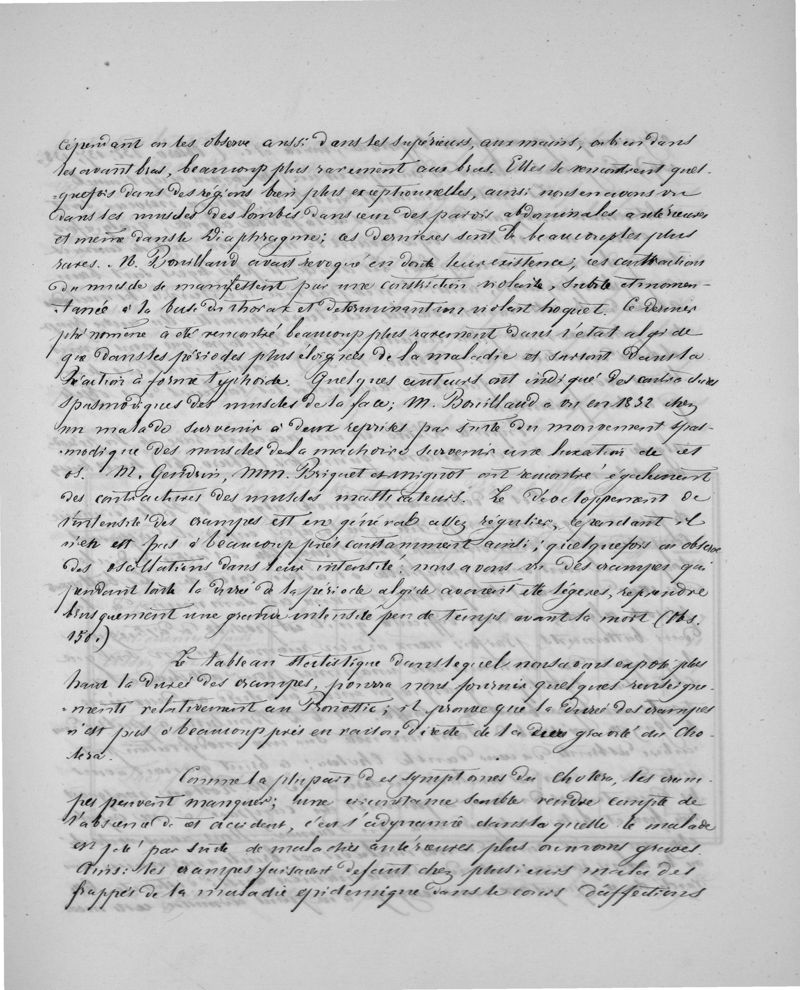 Cépendant on les observe aussi dans les supérieurs, aux mains, ou bien dans
les avant bras, beaucoup plus rarement aux bras. Elles se rencontrent quel-
-quefois dans des régions bien plus exceptionnelles, ainsi nous en avons vu
dans les muscles des lombes dans ceux des parois abdominales antérieures
et même dans le Diaphragme; ces dernières sont de beaucoup les plus
rares. M. Bouillaud avait revoqué en doute leur existence; ces contractions
du muscle se manifestent par une constriction violente, subite et momen-
tanée à la base du thorax et determinant un violent hoquet. Ce dernier
phénomène a été rencontré beaucoup plus rarement dans l'état algide
que dans les périodes plus éloignées de la maladie et surtout dans la
réaction à forme typhoïde. Quelques auteurs ont indiqué des contractures
spasmodiques des muscles de la face; M. Bouillaud a vu en 1832 chez
un malade survenir à deux reprises par suite du mouvement spas-
modique des muscles de la machoire survenir une luxation de cet
os. M. Gendrin, MM. Briquet et Mignot ont rencontré également
des contractures des muscles masticateurs. Le développement de
l'intensité des crampes est en général assez régulier, cependant il
n'en est pas à beaucoup près constamment ainsi; quelquefois on observe
des oscillations dans leur intensité: nous avons vu des crampes qui
pendant toute la durée de la période algide avaient été légères, reprendre
brusquement une grande intensité peu de temps avant la mort (Obs.
150.)
Le tableau statistique dans lequel nous avons exposé plus
haut la durée des crampes, pourra nous fournir quelques renseigne-
-ments relativement au Pronostic; il prouve que la durée des crampes
n'est pas à beaucoup près en raison directe de la gravité du Cho-
-léra.
Comme la plupart des symptômes du choléra, les cram-
pes peuvent manquer; une circonstance semble rendre compte de
l'absence de cet accident, c'est l'adynamie dans laquelle le malade
est jeté par suite de maladies antérieures plus ou moins graves
Ainsi les crampes faisaient defaut chez plusieurs malades
frappés de la maladie epidemique dans le cours d'affections